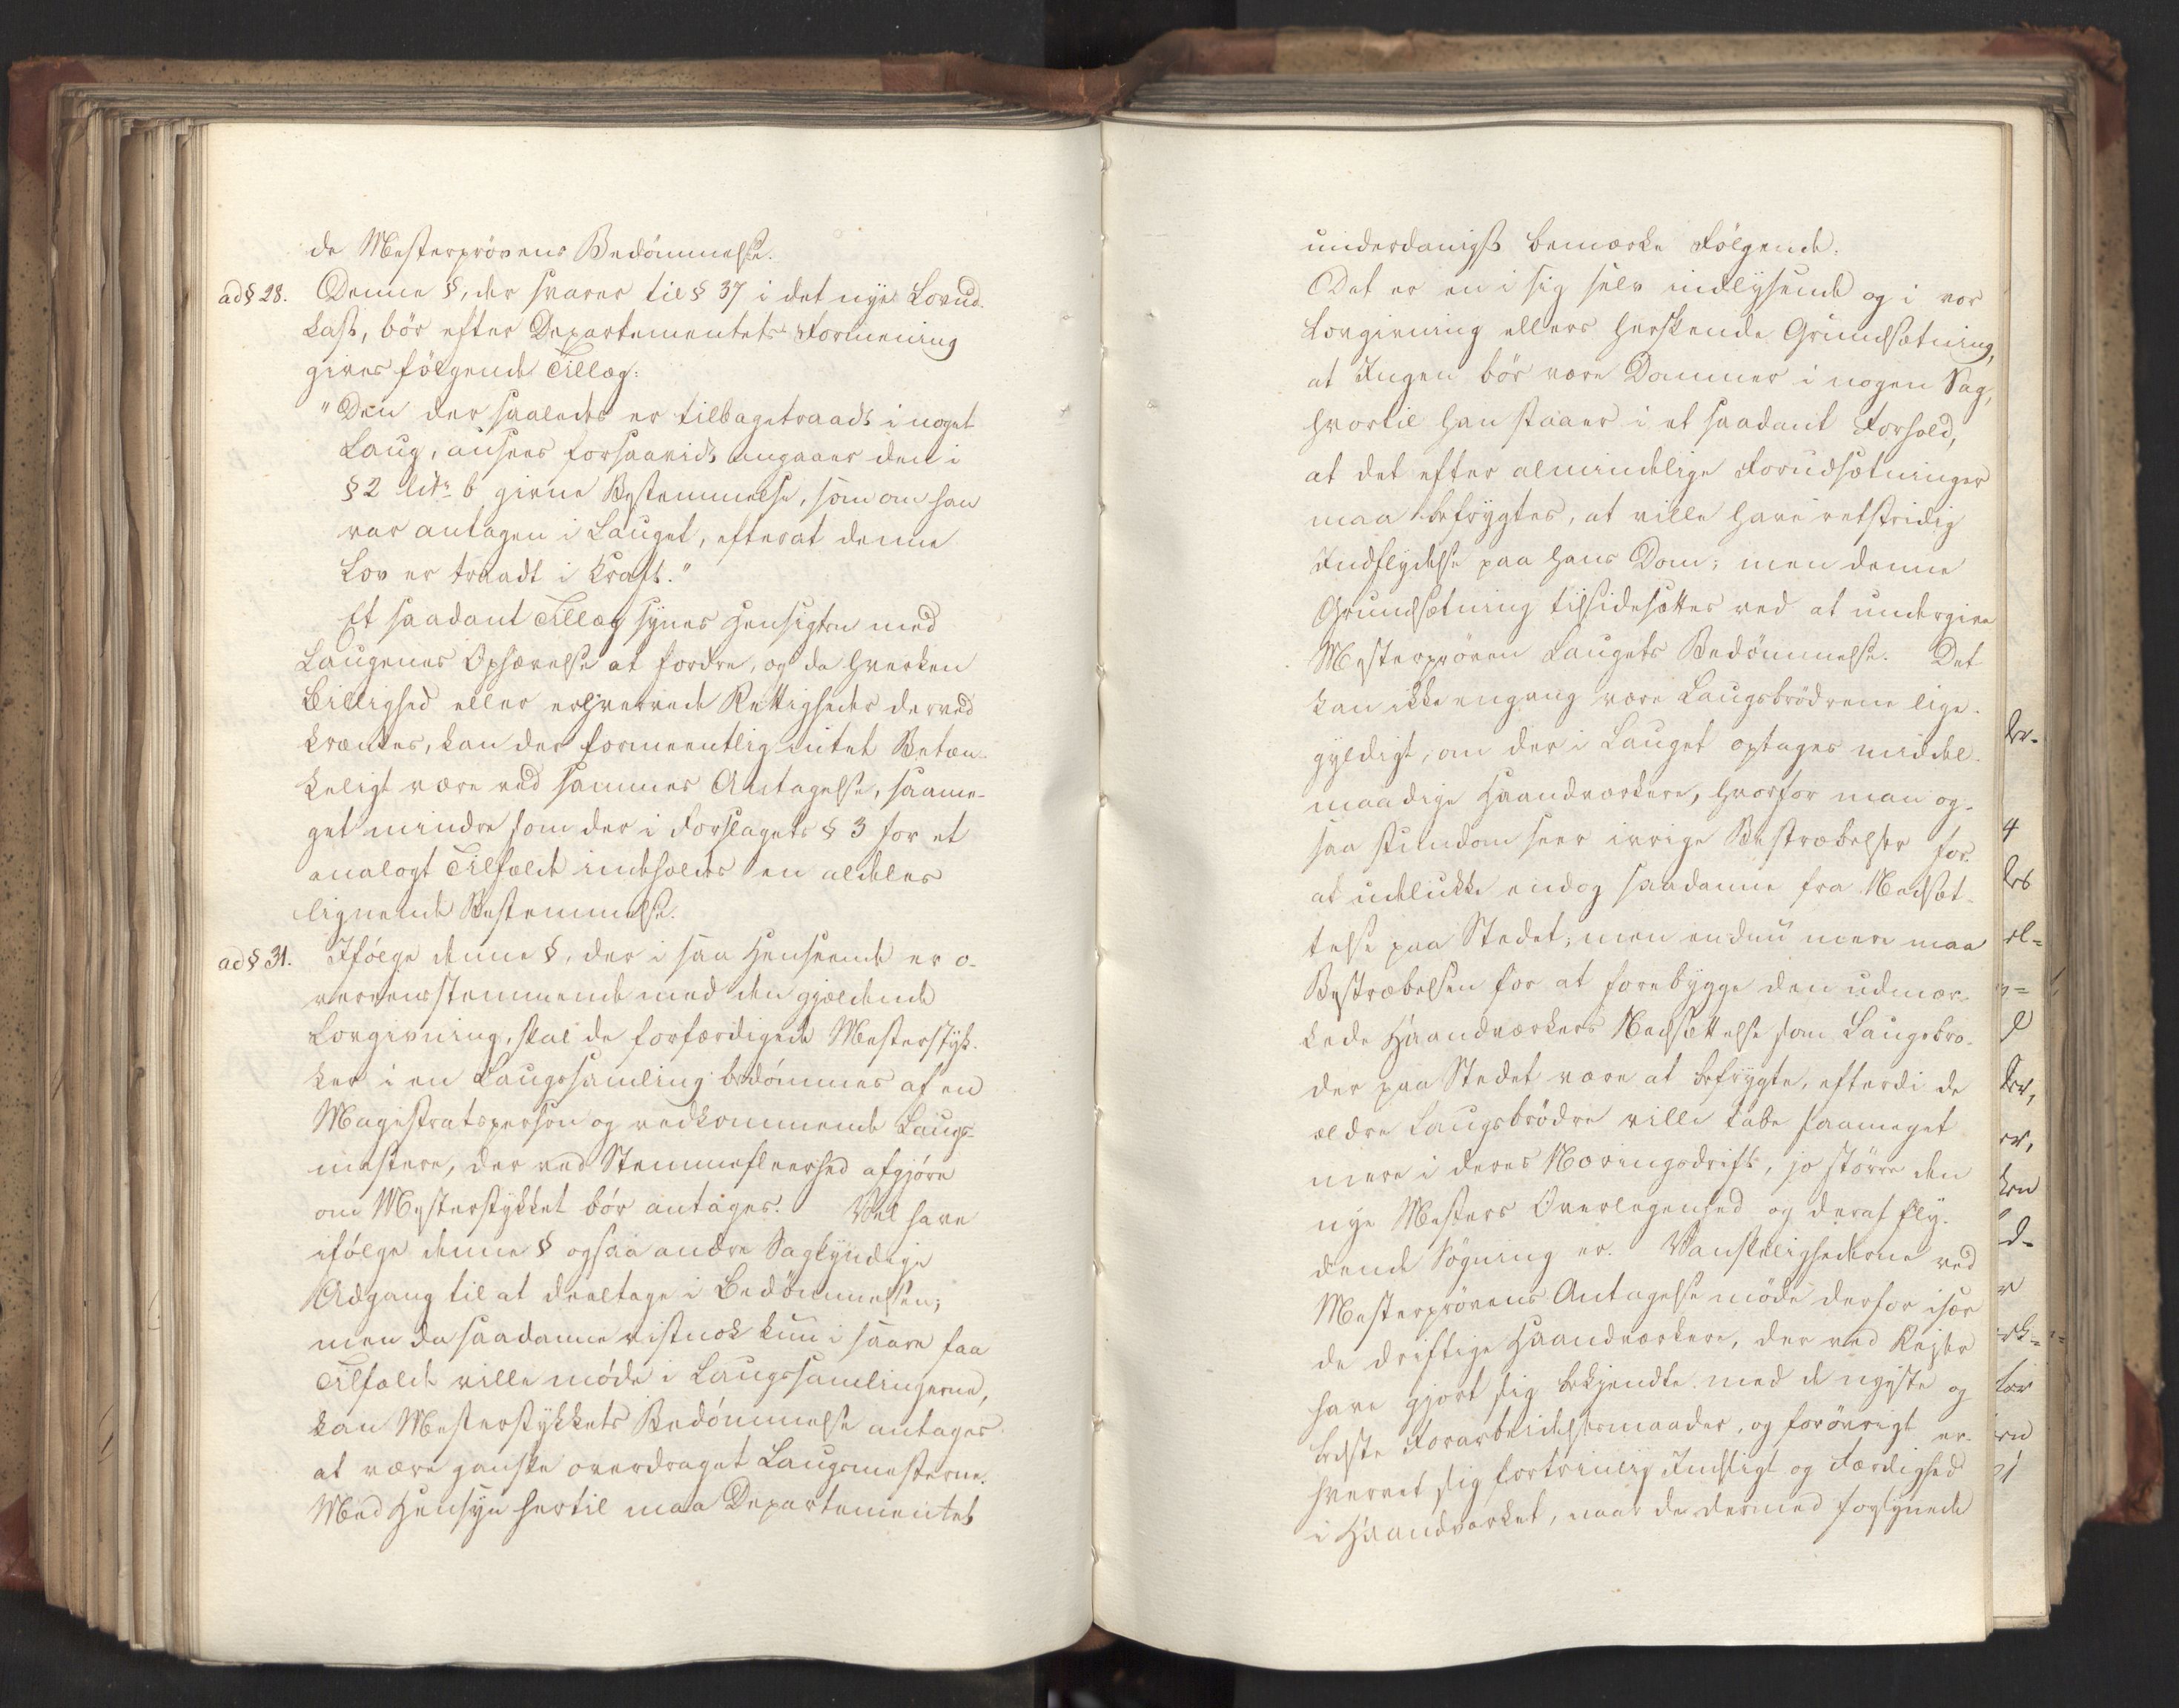 de Mesterprövens Bedömmelse.
ad § 28. Denne §, der svarer til § 37 i det nye Lovud-
kast, bör efter Departementets Formening
gives fölgende Tillæg:
"Den der saaledes er tilbagetraadt i noget
Laug, ansees forsaavidt angaaer den i
§ 2 Litr b givne Bestemmelse, som om han
var antagen i Lauget, efterat denne
Lov er traadt i Kraft."
Et saadant Tillæg synes Hensigten med
Laugenes Ophævelse at fordre, og da hverken
Billighed eller erhvervede Rettigheder derved
krænkes, kan der formeentlig intet Betæn-
keligt være ved sammes Antagelse, saame-
get mindre som der i Forslagets § 3 for et
analogt Tilfælde indeholdes en aldeles
lignende Bestemmelse.
ad § 31. Ifölge denne §, der i saa Henseende er o-
vereensstemmende med den gjældende
Lovgivning, skal de forfærdigede Mesterstyk-
ker i en Laugssamling bedömmes af en
Magistratsperson og vedkommende Laugs-
mestere, der ved Stemmefleerhed afgjöre
om Mesterstykket bör antages. Vel have
ifölge denne § ogsaa andre Sagkyndige
Adgang til at deeltage i Bedömmelsen;
men da saadanne vistnok kun i saare faa
Tilfælde ville möde i Laugssamlingerne,
kan Mesterstykkets Bedömmelse antages
at være ganske overdraget Laugsmesterne.
Med Hensyn hertil maa Departementet
underdanigst bemærke Fölgende:
Det er en i sig selv indlysende og i vor
Lovgivning ellers herskende Grundsætning,
at Ingen bör være Dommer i nogen Sag,
hvortil han staaer i et saadant Forhold,
at det efter almindelige Forudsætninger
maa befrygtes, at ville have retstridig
Indflydelse paa hans Dom; men denne
Grundsætning tilsidesættes ved at undergive
Mesterpröven Laugets Bedömmelse. Det
kan ikke engang være Laugsbrödrene lige-
gyldigt, om der i Lauget optages middel-
maadige Haandværkere, hvorfor man og-
saa stundom seer ivrige Bestræbelser for
at udelukke endog saadanne fra Nedsæt-
telse paa Stedet; men endnu mere maa
Bestræbelsen for at forebygge den udmær-
kede Haandværkers Nedsættelse som Laugsbro-
der paa Stedet være at befrygte, efterdi de
ældre Laugsbrödre ville tabe saameget
mere i deres Næringsdrift, jo större den
nye Mesters Overlegenhed og deraf fly-
dende Sögning er. Vanskelighederne ved
Mesterprövens Antagelse möde derfor især
de driftige Haandværkere, der ved Rejser
have gjort sig bekjendte med de nyeste og
bedste Forarbeidelsesmaader, og forövrigt er-
hvervet sig fortrinlig Indsigt og Færdighed
i Haandværket, naar de dermed forsynede